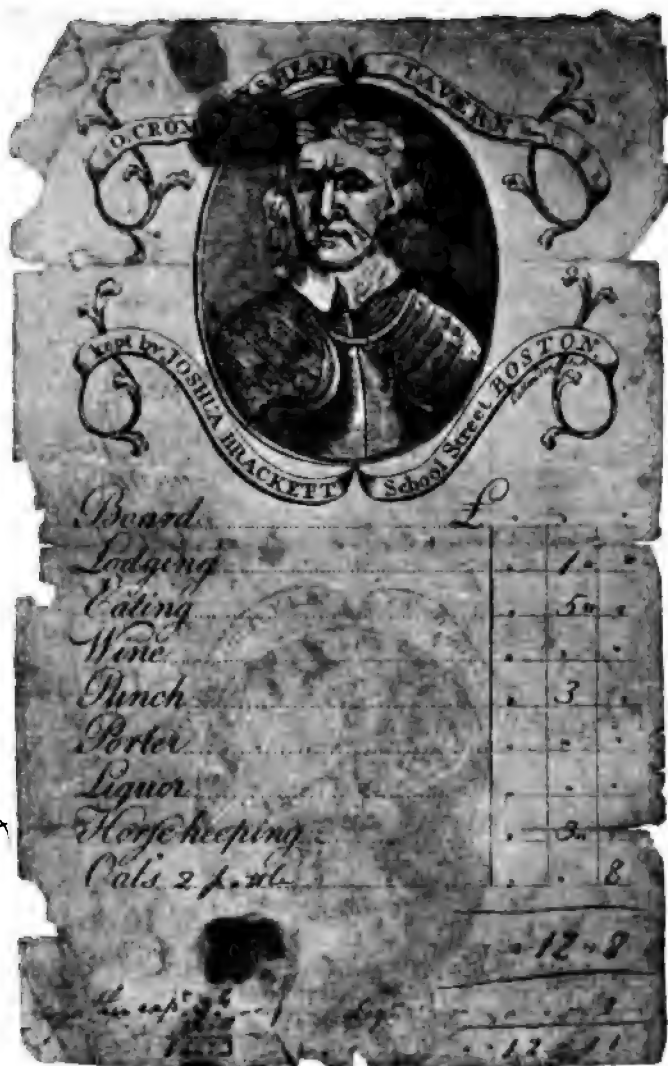 O. CROM HEAD TAVERN
kept by JOSHUA BRACKETT School Street BOSTON.
Board £
Lodgeng 1
Eating 5
Wine
Punch 3
Porter
Liquor
Horſe keeping 3
Oats 2 8
12 8
12 11